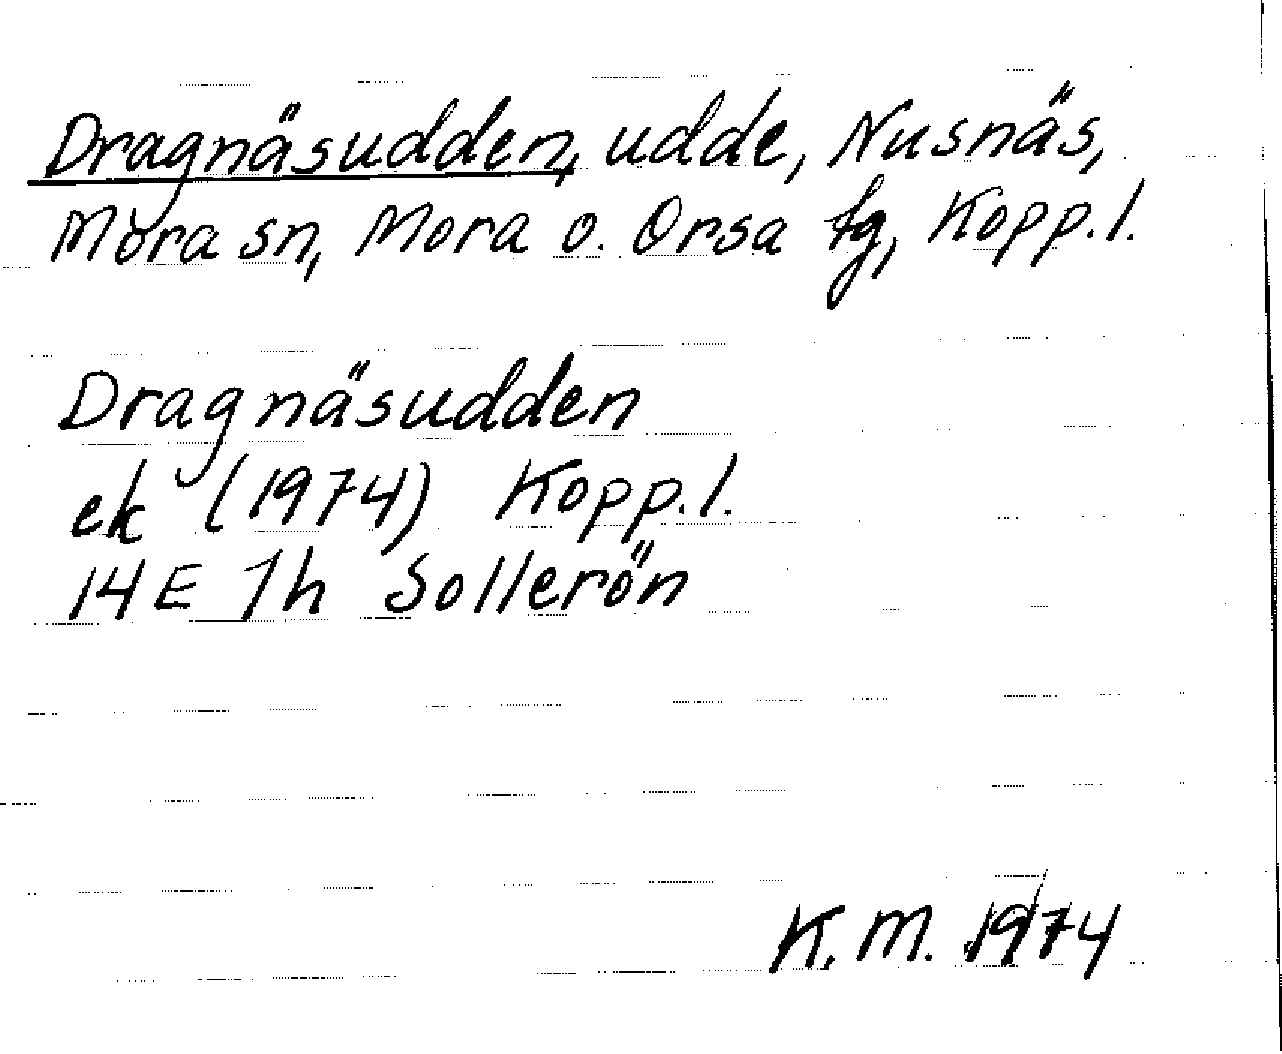 Dragnäsudden, udde, Nusnäs,
Mora sn, Mora o. Orsa tg, Kopp. l.
Dragnäsudden
ek (1974) Kopp. l.
14 E 1h Sollerön
K. M. 1974